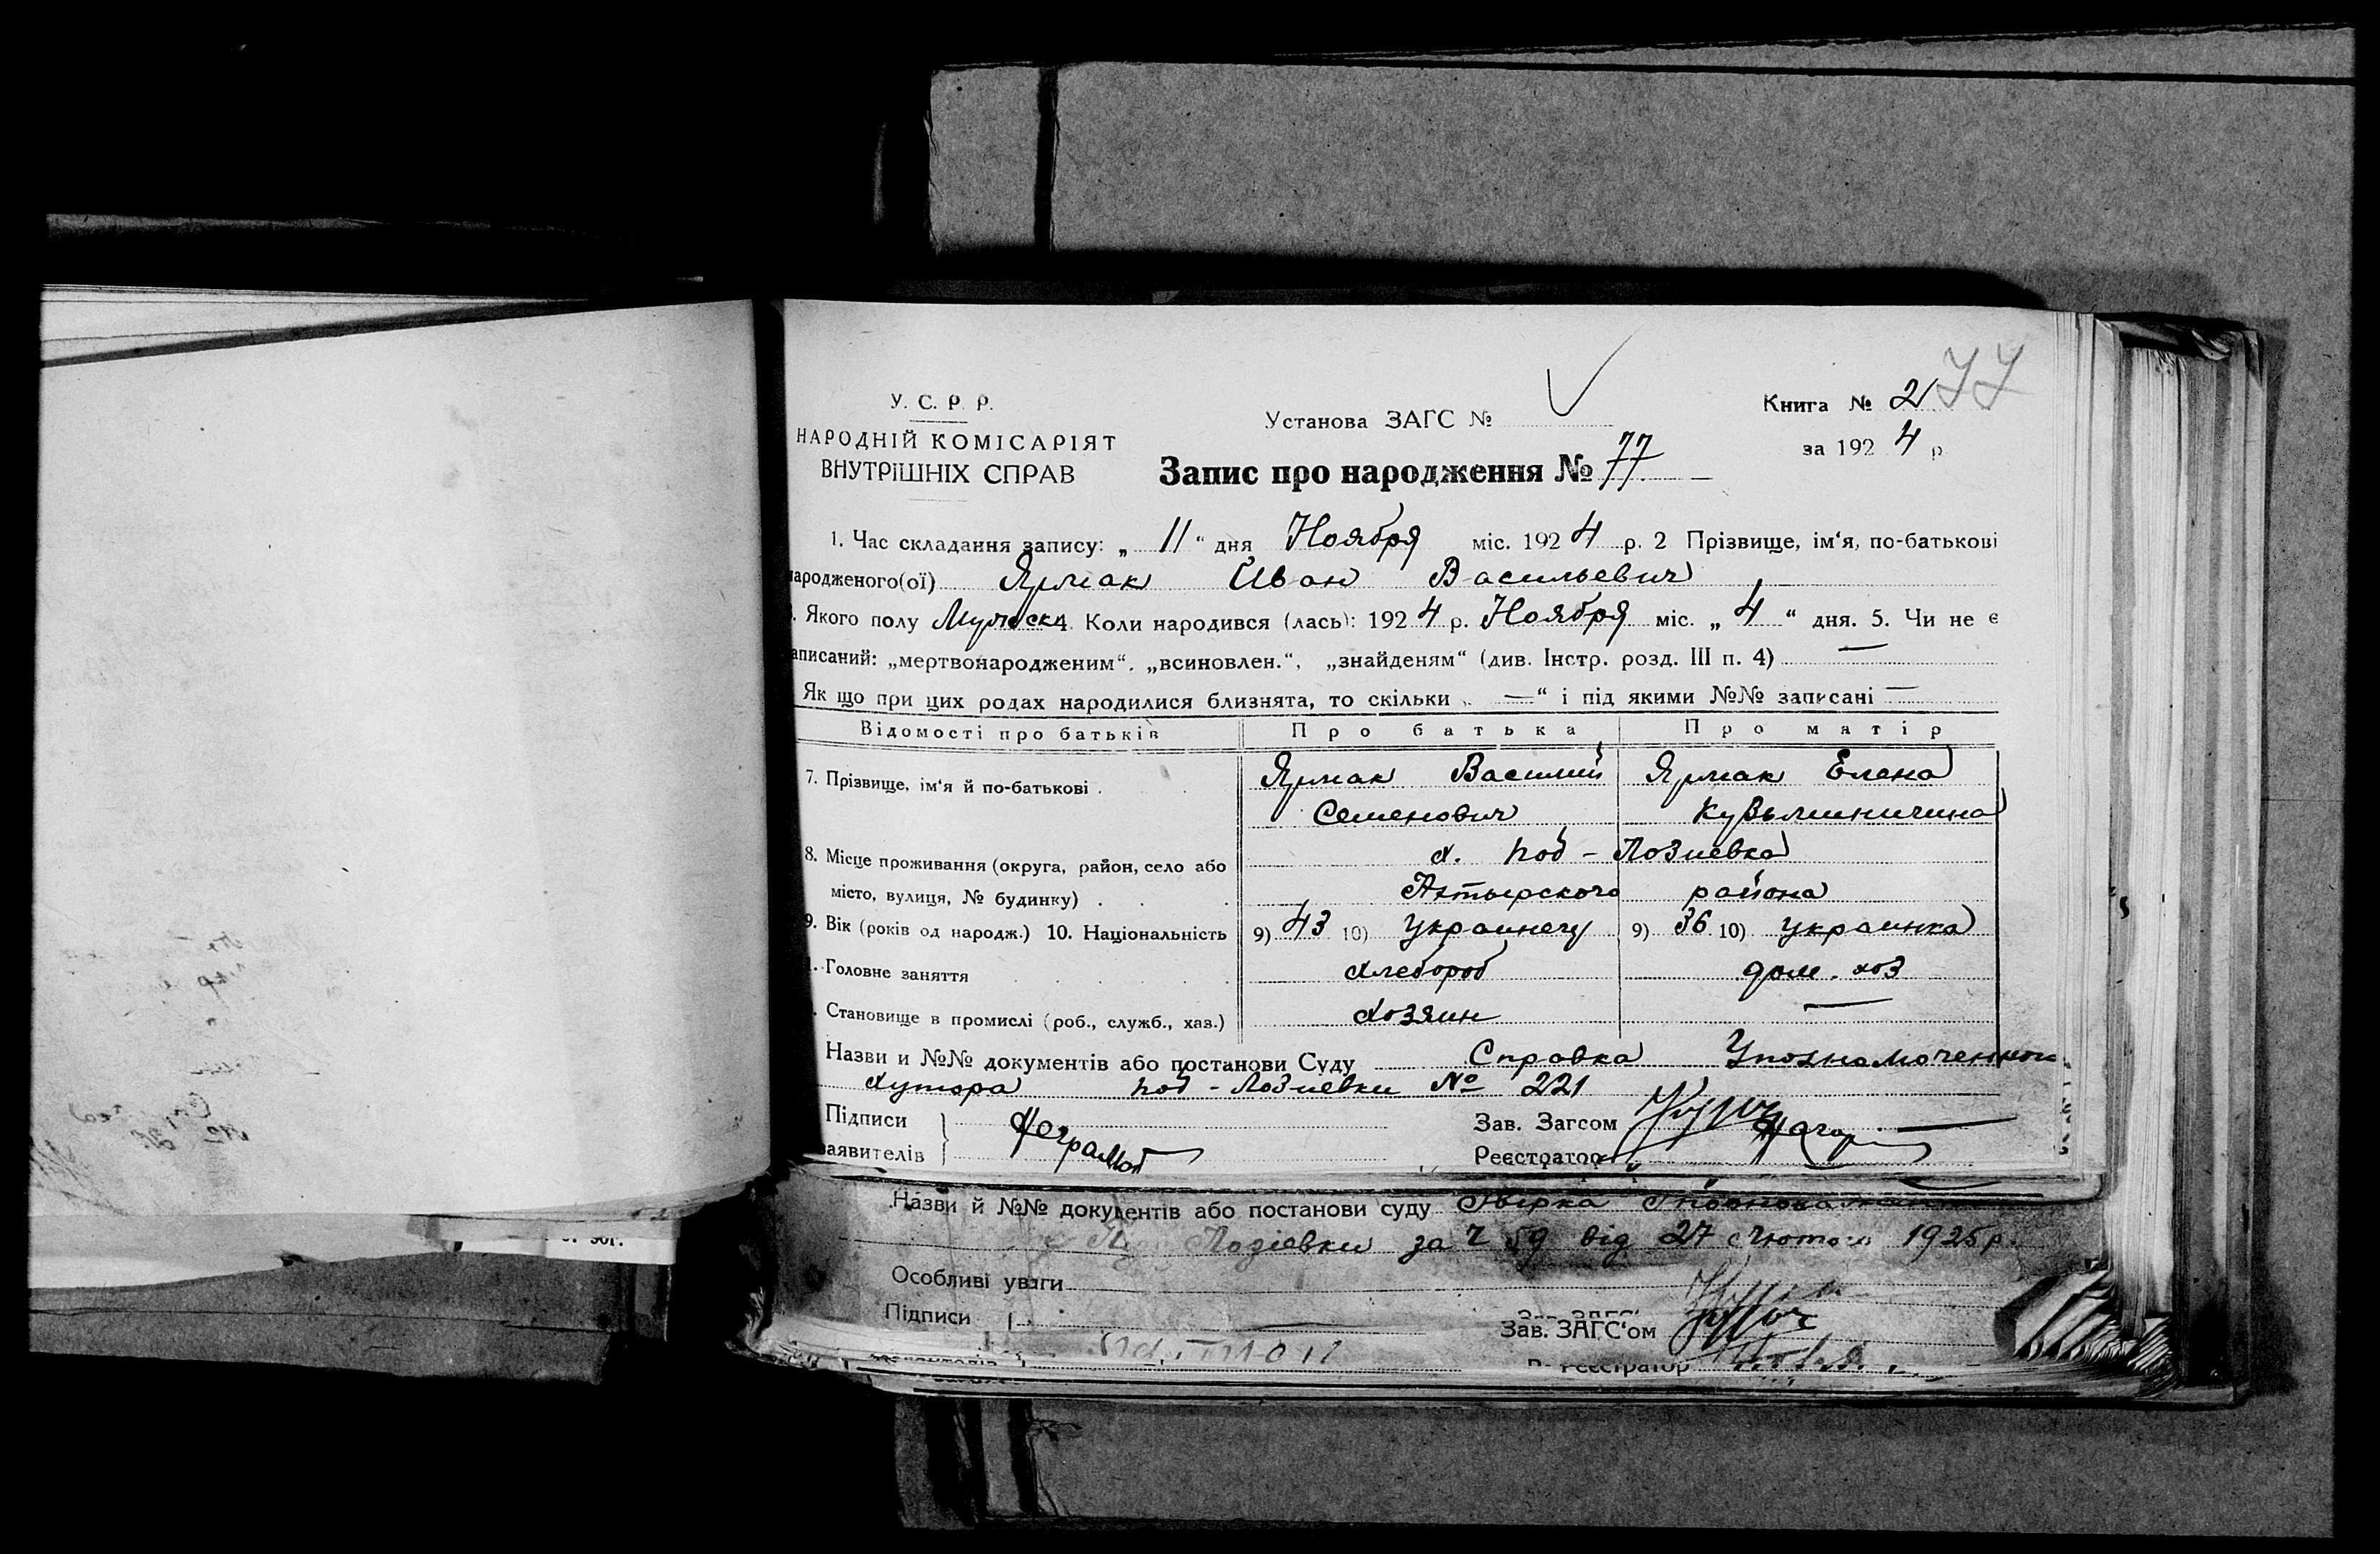 77
У. С. Р. Р.
НАРОДНІЙ КОМІСАРІЯТ
ВНУТРІШНІХ СПРАВ
Установа ЗАГС №
Книга № 2
за 1924 р
Запис про народження № 77.
1. Час складання запису: „ 11 “ дня Ноября міс. 1924 р. 2 Прізвище, ім‘я, по-батькові
народженого(ої) Ярмак Иван Васильевич
. Якого полу Мужск 4. Коли народився (лась): 1924 р. Ноября міс. „ 4 “ дня. 5. Чи не є
аписаний: „мертвонародженим“, „всиновлен.“, „знайденям“ (див. Інстр. розд. III п. 4) —
Як що при цих родах народилися близнята, то скільки „ — “ і під якими №№ записані —
Відомості про батьків Про батька Про матір
7. Прізвище, ім‘я й по-батькові . Ярмак Василий Ярмак Елена
Семенович Кузьминична
8. Місце проживання (округа, район, село або х. Под-Лозиевка
місто, вулиця, № будинку) . . . Ахтырского района
9. Вік (років од народж.) 10. Національність 9) 43 10) украинец 9) 36 10) украинка
. Головне заняття хлебороб дом. хоз
. Становище в промислі (роб., служб., хаз.) хозяин —
Назви и №№ документів або постанови Суду Справка Уполномоченного
хутора Под-Лозиевки № 221
Підписи
заявителів
Неграмот
Зав. Загсом
Реєстратор
Назви й №№ документів або постанови суду
Лозіевки за Ч 59 від 27 Лютого 1925 р.
Особливі уваги
Підписи
Зав. ЗАГС‘ом
Реєстратор